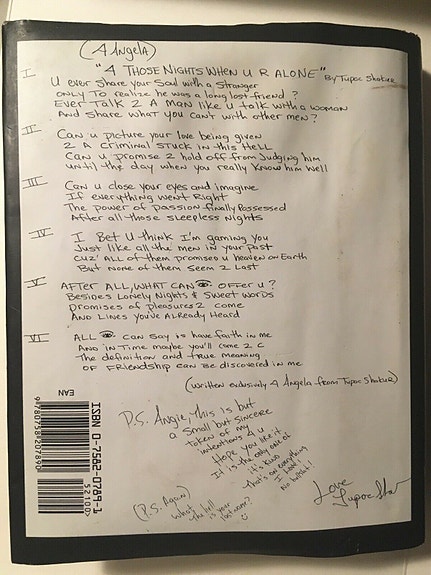 (4 Angela)
"4 THOSE NIGHTS WHEN U R ALONE" By Tupac Shakur
I
U ever share your Soul with a Stranger
ONLY To realize he was a long lost friend?
Ever Talk 2 A MAN like U talk with a woman
And share what you can't with other men?
II
Can u picture your love being given
2 A Criminal STUCK in this Hell
Can u promise 2 hold off from Judging him
Until the day when you really Know him Well
III
Can u close your eyes and imagine
If everything went Right
The power of passion finally Possessed
After all those sleepless Nights
IV
I Bet U think I'm gaming you
Just like all the men in your past
CUZ' ALL OF them promised u heaven on Earth
But none of them seem 2 Last
V
AFTER ALL, WHAT CAN 👁 OFFER U?
Besides Lonely Nights & Sweet words
Promises of pleasures 2 come
AND LINES You've Already Heard
VI
ALL 👁 CAN Say is have faith in me
AND in Time maybe you'll come 2 C
The definition and true meaning
OF FRIENDSHIP can be discovered in me
(Written exclusively 4 Angela from Tupac Shakur)
P.S. Angie, This is but
a small but sincere
token of my
intentions 4 u
Hope you like it
It is the only one of
it's kind
That's on everything
I love!
No bullshit!
(P.S. Again)
What The hell
is your
last name?
Love
Tupac Shakur
EAN
9780758207890
ISBN 0-7582-0789-1
52100